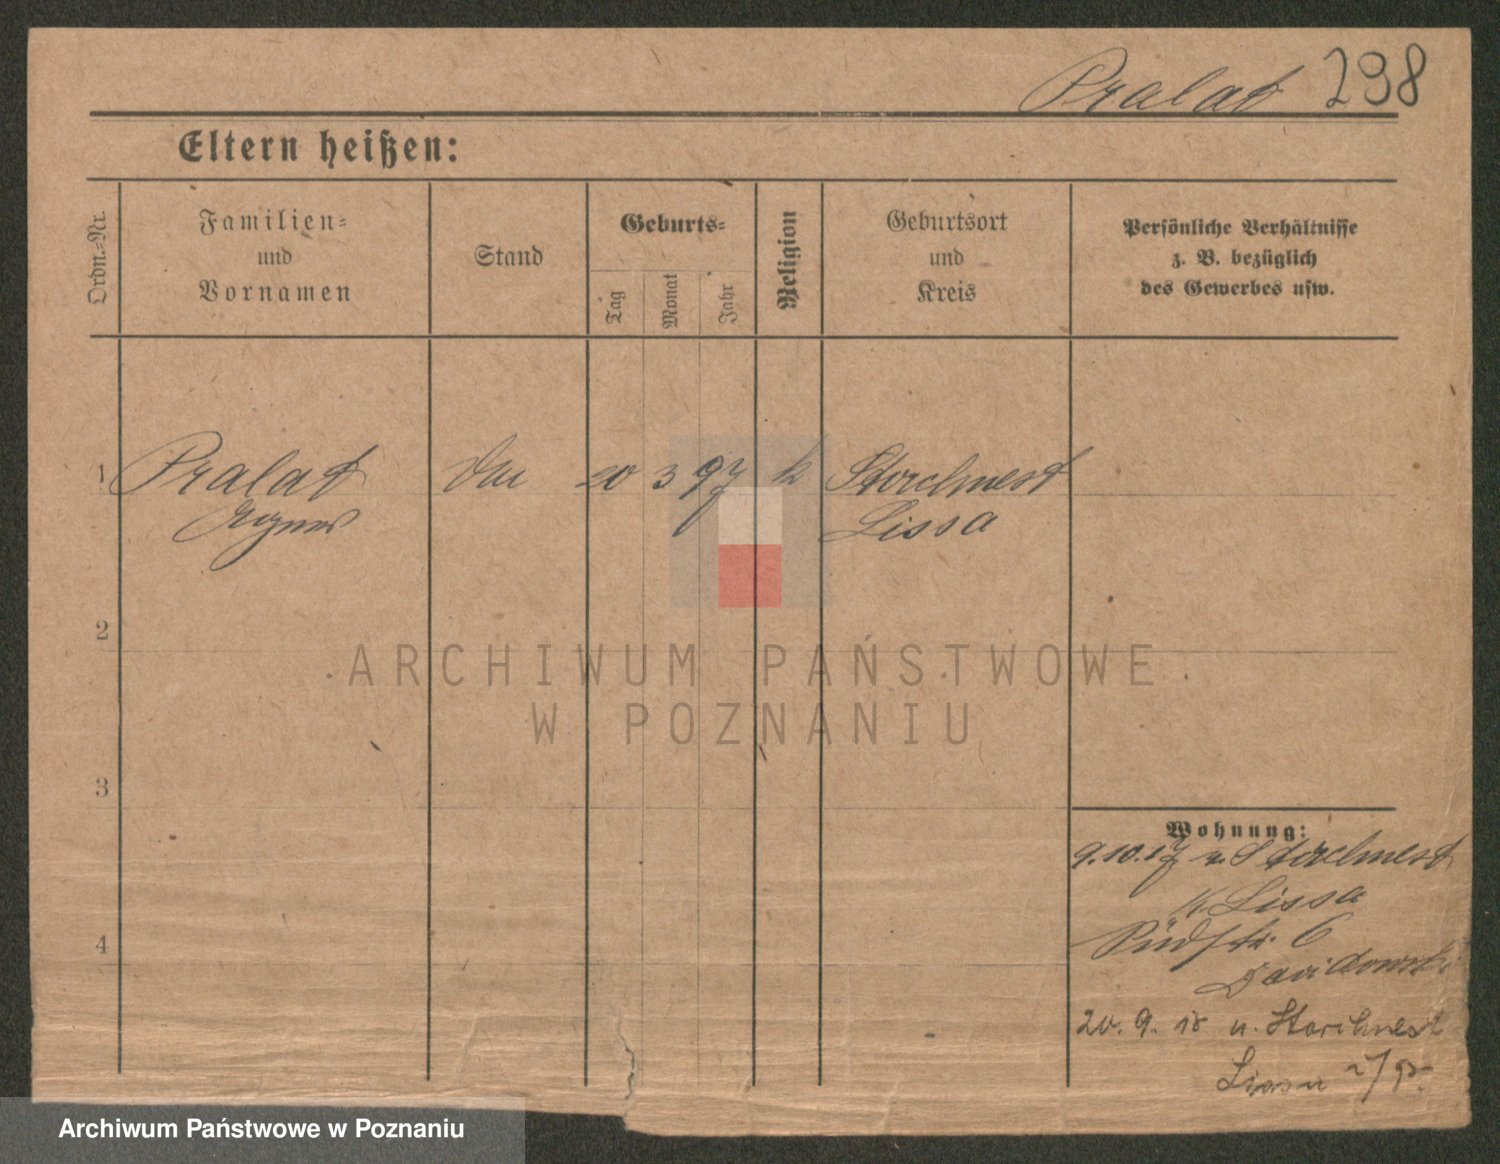 Pralat 298
Eltern heißen:
Ordn.=Nr.
Familien=
und
Vornamen
Stand
Geburts=
Tag
Monat
Jahr
Religion
Geburtsort
und
Kreis
Persönliche Verhältnisse
z. B. bezüglich
des Gewerbes usw.
1 Pralat 20 3 97 k Storchnest
Agnes Lissa
2
3
4
Wohnung:
9.10.17 v. Storchnest
K. Lissa
Südstr. 6
Davidowski
20. 9. 18 n. Storchnest
Lissa
ARCHIWUM PAŃSTWOWE
W POZNANIU
Archiwum Państwowe w Poznaniu